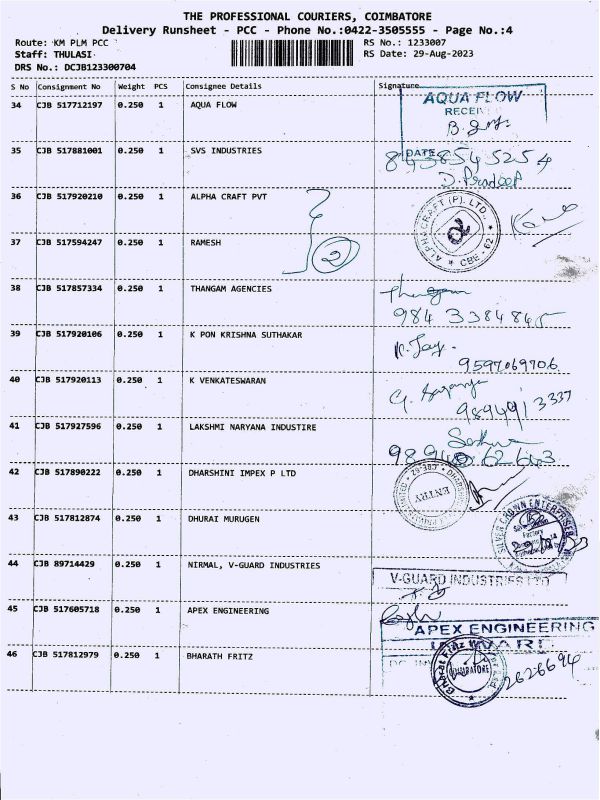 THE PROFESSIONAL COURIERS, COIMBATORE
Delivery Runsheet - PCC - Phone No.:0422-3505555 - Page No.:4
Route: KM PLM PCC RS No.: 1233007
Staff: THULASI RS Date: 29-Aug-2023
DRS No.: DCJB123300704
S No Consignment No Weight PCS Consignee Details Signature
34 CJB 517712197 0.250 1 AQUA FLOW
AQUA FLOW
DATE
35 CJB 517881001 0.250 1 SVS INDUSTRIES
8438545254
D. Pradeep
36 CJB 517920210 0.250 1 ALPHA CRAFT PVT
ALPHACRAFT (P). LTD. CBE - 62
37 CJB 517594247 0.250 1 RAMESH
2
38 CJB 517857334 0.250 1 THANGAM AGENCIES
984 3384845
39 CJB 517920106 0.250 1 K PON KRISHNA SUTHAKAR
K. Jay.
9597069706
40 CJB 517920113 0.250 1 K VENKATESWARAN
9894913337
41 CJB 517927596 0.250 1 LAKSHMI NARYANA INDUSTIRE
42 CJB 517890222 0.250 1 DHARSHINI IMPEX P LTD
ENTRY
43 CJB 517812874 0.250 1 DHURAI MURUGEN
SILVER CROWN ENTERPRISES
44 CJB 89714429 0.250 1 NIRMAL, V-GUARD INDUSTRIES
V-GUARD INDUSTRIES LTD
45 CJB 517605718 0.250 1 APEX ENGINEERING
APEX ENGINEERING
46 CJB 517812979 0.250 1 BHARATH FRITZ
COIMBATORE
2626694